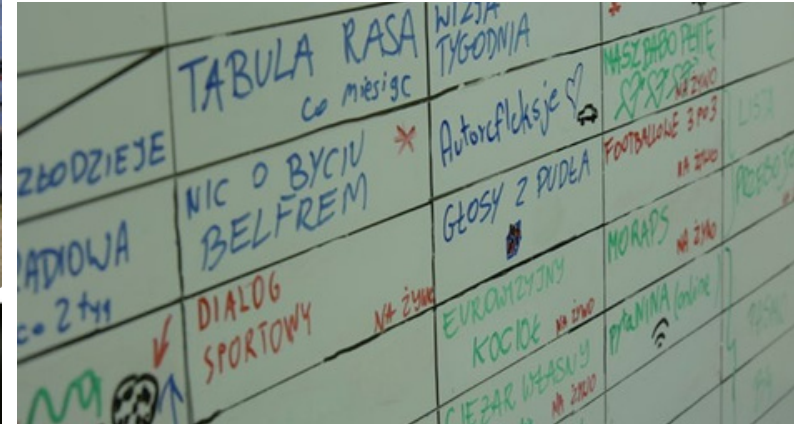 ZŁODZIEJE
RADIOWA
co 2 tyg
TABULA RASA
co miesiąc
NIC O BYCIU
BELFREM
DIALOG
SPORTOWY
NA ŻYWO
WIZJA
TYGODNIA
Autorefleksje
GŁOSY Z PUDŁA
EUROWIZYJNY
KOCIOŁ
NA ŻYWO
CIĘŻAR WŁASNY
NA ŻYWO
NASZ BABO PŁYTĘ
NA ŻYWO
FOOTBALLOWE 3 PO 3
NA ŻYWO
MORAPS
NA ŻYWO
(online)
LISTA